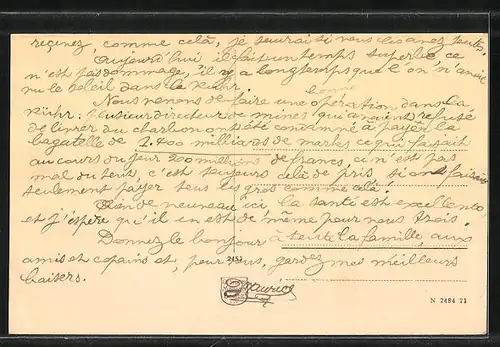 reçevez, comme celà, je saurai si vous les avez toutes.
Aujourd'hui il fait un temps superbe ce
n'est pas dommage, il y a longtemps que l'on n'avait
vu le soleil dans la Ruhr.
bonne
Nous venons de faire une opération dans la
Ruhr: plusieur directeur de mines qui avaient refusé
de livrer du charbon ont été condamné à payer la
bagatelle de 2.400 milliards de marks ce qui faisait
au cours du jour 200 millions de francs, ci n'est pas
mal du tout, c'est toujours celà de pris si on faisait
seulement payer tous les gros comme celà!
Rien de nouveau ici la santé est excellente
et j'espère qu'il en est de même pour vous trois.
Donnez le bonjour à toute la famille, aux
amis et copains et, pour vous, gardez mes meilleurs
baisers.
2484
Maurice
N 2484 21